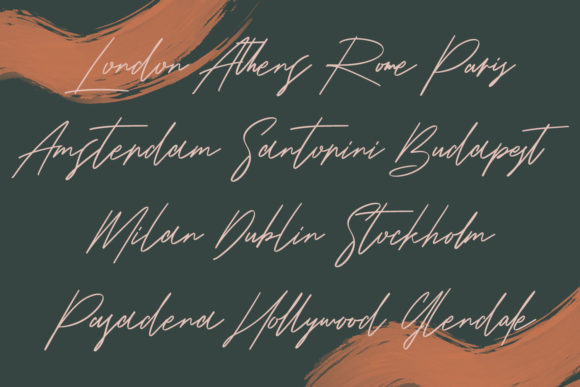 London Athens Rome Paris
Amsterdam Santorini Budapest
Milan Dublin Stockholm
Pasadena Hollywood Glendale